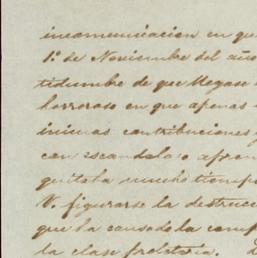 incomunicacion en que
1º de Noviembre del año
tidumbre de que llegase
horroroso en que apenas
inicuas contribuciones
con escandalo
quitaba mucho tiempo
V. figurarse la destruc
que ha causado la
la clase proletaria.